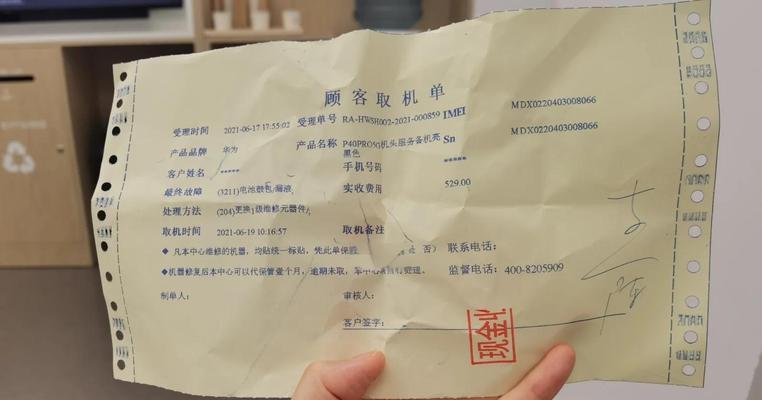 顾客取机单
受理时间 2021-06-17 17:55:02 受理单号 RA-HWSH002-2021-000859 IMEI MDX0220403008066
产品品牌 华为 产品名称 P40PRO5G机头服务备机亮黑色 Sn MDX0220403008066
客户姓名 ***** 手机号码 *****
最终故障 (3211)电池鼓包/漏液 实收费用 529.00
处理方法 (204)更换1级维修元器件
取机时间 2021-06-19 10:16:57 取机备注
◆ 凡本中心维修的机器，均贴统一标贴，凭此单保 否） 联系电话：
◆机器修复后本中心可以代保管壹个月，逾期未取，本中心 监督电话：400-8205909
制单人： 审核人：
客户签字：
现金收